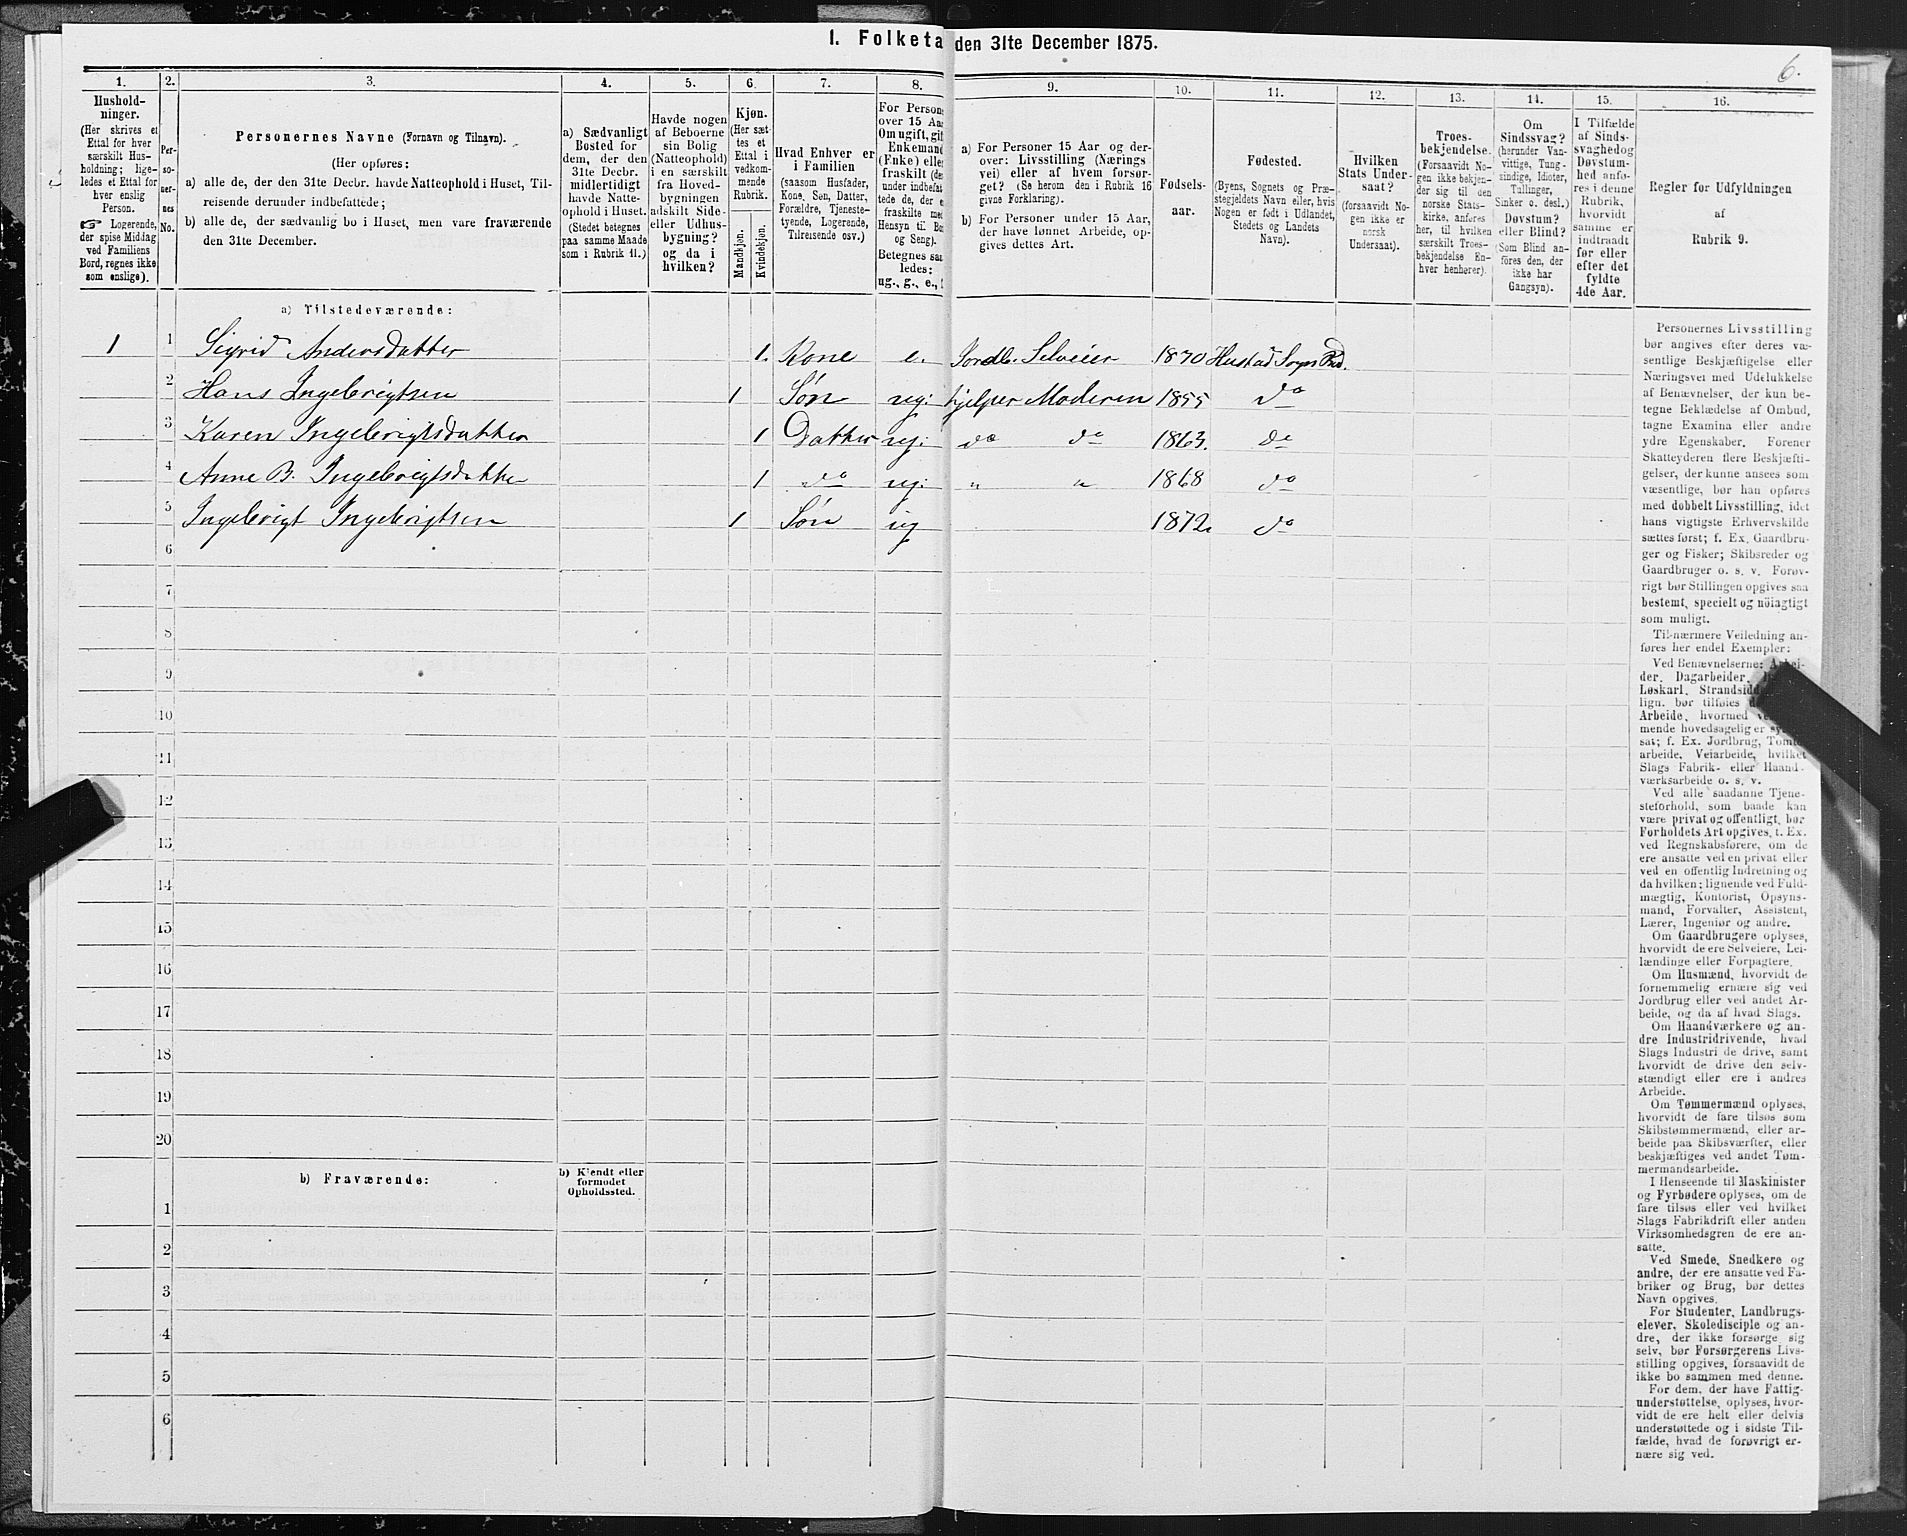 1. Folketa den 31te December 1875.
6.
1. 2. 3. 4. 5. 6. 7. 8. 9. 10. 11. 12. 13. 14. 15. 16.
Hushold-
ninger.
(Her skrives et
Ettal for hver
særskilt Hus-
holdning; lige-
ledes et Ettal for
hver enslig
Person.
☞ Logerende,
der spise Middag
ved Familiens
Bord, regnes ikke
som enslige).
Per-
so-
ner-
nes
No.
Personernes Navne (Fornavn og Tilnavn).
(Her opføres:
a) alle de, der den 31te Decbr. havde Natteophold i Huset, Til-
reisende derunder indbefattede;
b) alle de, der sædvanlig bo i Huset, men vare fraværende
den 31te December.
a) Sædvanligt
Bosted for
dem, der den
31te Decbr.
midlertidigt
havde Natte-
ophold i Huset.
(Stedet betegnes
paa samme Maade
som i Rubrik 11.)
Havde nogen
af Beboerne
sin Bolig
(Natteophold)
i en særskilt
fra Hoved-
bygningen
adskilt Side-
eller Udhus-
bygning?
og da i
hvilken?
Kjøn.
(Her sæt-
tes et
Ettal i
vedkom-
mende
Rubrik.
Mandkjøn.
Kvindekjøn.
Hvad Enhver er
i Familien
(saasom Husfader,
Kone, Søn, Datter,
Forældre, Tjeneste-
tyende, Logerende,
Tilreisende osv.)
For Person
over 15 Aar
Om ugift, gif
Enkemand
(Enke) elle
fraskilt (de
under indbefat
tede de, der e
fraskilte med
Hensyn til Bo
og Seng).
Betegnes saa
ledes:
ug., g., e.,
a) For Personer 15 Aar og der-
over: Livsstilling (Nærings
vei) eller af hvem forsør-
get? (Se herom den i Rubrik 16
givne Forklaring).
b) For Personer under 15 Aar,
der have lønnet Arbeide, op-
gives dettes Art.
Fødsels-
aar.
Fødested.
(Byens, Sognets og Præ-
stegjeldets Navn eller, hvis
Nogen er født i Udlandet,
Stedets og Landets
Navn).
Hvilken
Stats Under-
saat?
(forsaavidt No-
gen ikke er
norsk
Undersaat).
Troes-
bekjendelse.
(Forsaavidt No-
gen ikke bekjen-
der sig til den
norske Stats-
kirke, anføres
her, til hvilken
særskilt Troes-
bekjendelse En-
hver henhører).
Om
Sindssvag?
(herunder Van-
vittige, Tung-
sindige, Idioter,
Tullinger,
Sinker o. desl.)
Døvstum?
eller Blind?
(Som Blind an-
føres den, der
ikke har
Gangsyn).
I Tilfælde
af Sinds-
svaghed og
Døvstum-
hed anfø-
res i denne
Rubrik,
hvorvidt
samme er
indtraadt
før eller
efter det
fyldte
4de Aar.
Regler for Udfyldningen
af
Rubrik 9.
a) Tilstedeværende:
1 1 Sigrid Andersdatter 1. Kone e. Jordb. Selveier 1870 Hustad Sogn
2 Hans Ingebrigtsen 1 Søn ug: hjelper Moderen 1855 do
3 Karen Ingebrigtsdatter 1 Datter ug: do do 1863. do
4 Anne B. Ingebrigtsdatter 1 do ug: " " 1868 do
5 Ingebrigt Ingebrigtsen 1 Søn ug 1872. do
6
7
8
9
10
11
12
13
14
15
16
17
18
19
20
b) Fraværende:
b) Kjendt eller
formodet
Opholdssted.
1
2
3
4
5
6
Personernes Livsstilling
bør angives efter deres væ-
sentlige Beskjæftigelse eller
Næringsvei med Udelukkelse
af Benævnelser, der kun be-
tegne Beklædelse af Ombud,
tagne Examina eller andre
ydre Egenskaber. Forener
Skatteyderen flere Beskjæfti-
gelser, der kunne ansees som
væsentlige, bør han opføres
med dobbelt Livsstilling, idet
hans vigtigste Erhvervskilde
sættes først; f. Ex. Gaardbru-
ger og Fisker; Skibsreder og
Gaardbruger o. s. v. Forøv-
rigt bør Stillingen opgives saa
bestemt, specielt og nöiagtigt
som muligt.
Til nærmere Veiledning an-
føres her endel Exempler:
Ved Benævnelserne: Arbei-
der, Dagarbeider,
Løskarl, Strandsidd
lign. bør tilføies
Arbeide, hvormed
mende hovedsagelig er
sat; f. Ex. Jordbrug, Tomte-
arbeide, Veiarbeide, hvilket
Slags Fabrik- eller Haand-
værksarbeide o. s. v.
Ved alle saadanne Tjene-
steforhold, som baade kan
være privat og offentligt, bør
Forholdets Art opgives, f. Ex.
ved Regnskabsførere, om de
ere ansatte ved en privat eller
ved en offentlig Indretning og
da hvilken; lignende ved Fuld-
mægtig, Kontorist, Opsyns-
mand, Forvalter, Assistent,
Lærer, Ingeniør og andre.
Om Gaardbrugere oplyses,
hvorvidt de ere Selveiere, Lei-
lændinge eller Forpagtere.
Om Husmænd, hvorvidt de
fornemmelig ernære sig ved
Jordbrug eller ved andet Ar-
beide, og da af hvad Slags.
Om Haandværkere og an-
dre Industridrivende, hvad
Slags Industri de drive, samt
hvorvidt de drive den selv-
stændigt eller ere i andres
Arbeide.
Om Tømmermænd oplyses,
hvorvidt de fare tilsøs som
Skibstømmermænd, eller ar-
beide paa Skibsværfter, eller
beskjæftiges ved andet Tøm-
mermandsarbeide.
I Henseende til Maskinister
og Fyrbødere oplyses, om de
fare tilsøs eller ved hvilket
Slags Fabrikdrift eller anden
Virksomhedsgren de ere an-
satte.
Ved Smede, Snedkere og
andre, der ere ansatte ved Fa-
briker og Brug, bør dettes
Navn opgives.
For Studenter, Landbrugs-
elever, Skoledisciple og an-
dre, der ikke forsørge sig
selv, bør Forsørgerens Livs-
stilling opgives, forsaavidt de
ikke bo sammen med denne.
For dem, der have Fattig-
understøttelse, oplyses, hvor-
vidt de ere helt eller delvis
understøttede og i sidste Til-
fælde, hvad de forøvrigt er-
nære sig ved.